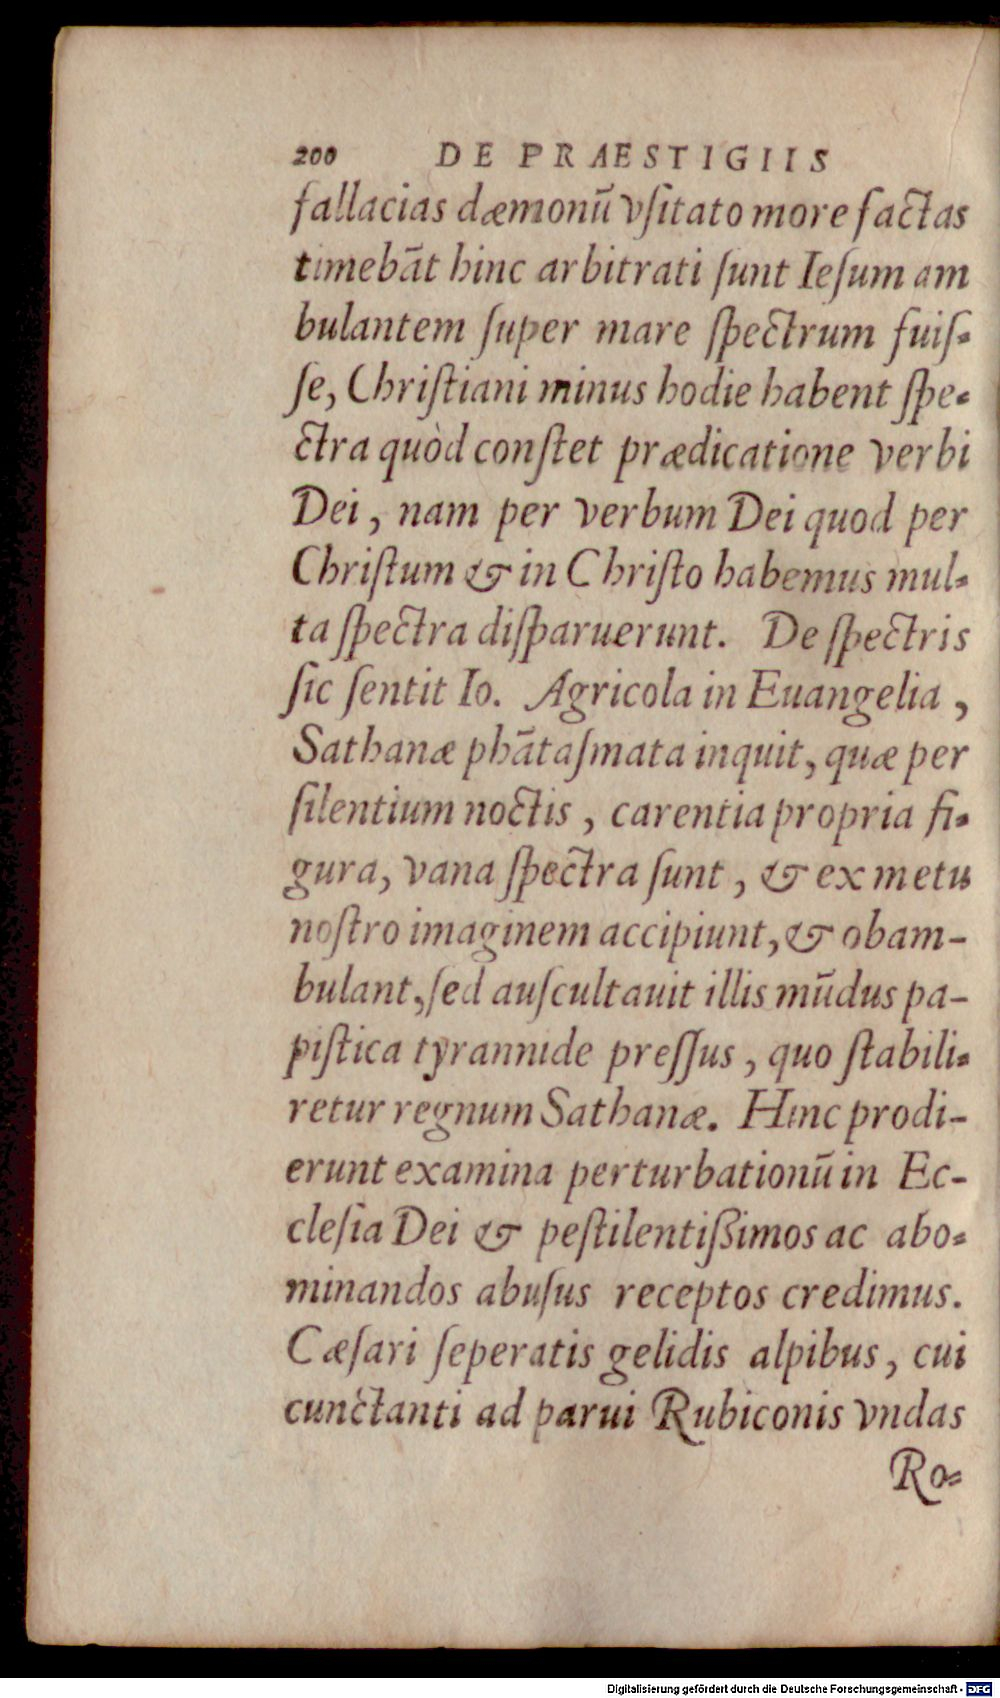 200 DE PRAESTIGIIS
fallacias dæmonū vſitato more factas
timebāt hinc arbitrati ſunt Ieſum am
bulantem ſuper mare ſpectrum fuiſ-
ſe, Chriſtiani minus hodie habent ſpe-
ctra quòd conſtet prædicatione verbi
Dei, nam per verbum Dei quod per
Chriſtum & in Chriſto habemus mul-
ta ſpectra diſparuerunt. De ſpectris
ſic ſentit Io. Agricola in Euangelia,
Sathanæ phātaſmata inquit, quæ per
ſilentium noctis, carentia propria fi-
gura, vana ſpectra ſunt, & ex metu
noſtro imaginem accipiunt, & obam-
bulant, ſed auſcultauit illis mūdus pa-
piſtica tyrannide preſſus, quo ſtabili-
retur regnum Sathanæ. Hinc prodi-
erunt examina perturbationū in Ec-
cleſia Dei & peſtilentißimos ac abo-
minandos abuſus receptos credimus.
Cæſari ſeperatis gelidis alpibus, cui
cunctanti ad parui Rubiconis vndas
Ro-
Digitalisierung gefördert durch die Deutsche Forschungsgemeinschaft - DFG